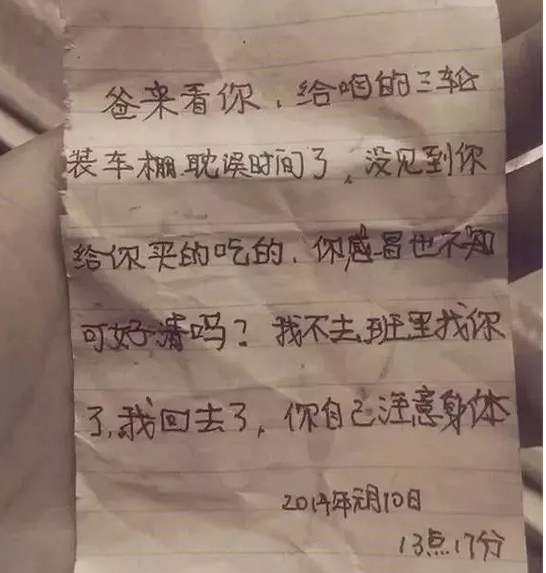 爸来看你,给咱的三轮
装车棚耽误时间了,没见到你
给你买的吃的、你感冒也不知
可好清吗?我不去班里找你
了,我回去了,你自己注意身体
2014年元月10日
13点17分